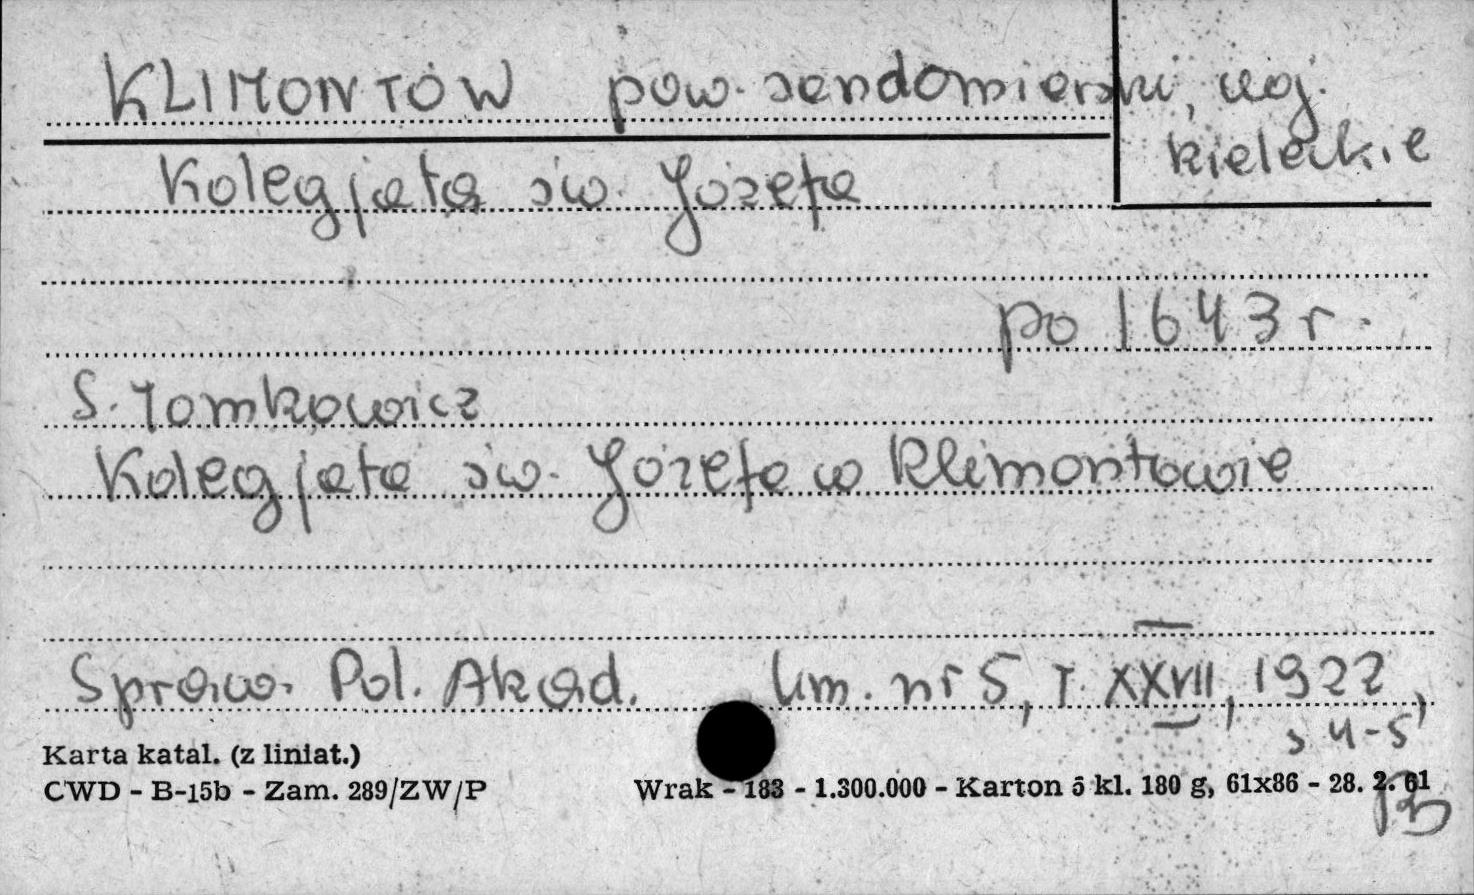 KLIMONTÓW pow. sandomierski, woj.
kieleckie
Kolegjata św. Józefa
po 1643 r.
S. Tomkowicz
Kolegjata św. Józefa w Klimontowie
Spraw. Pol. Akad. Um. nr 5, T. XXVII, 1922,
s 4-5
Karta katal. (z liniat.)
CWD - B-15b - Zam. 289/ZW/P
Wrak - 183 - 1.300.000 - Karton 5 kl. 180 g, 61x86 - 28. 2. 61